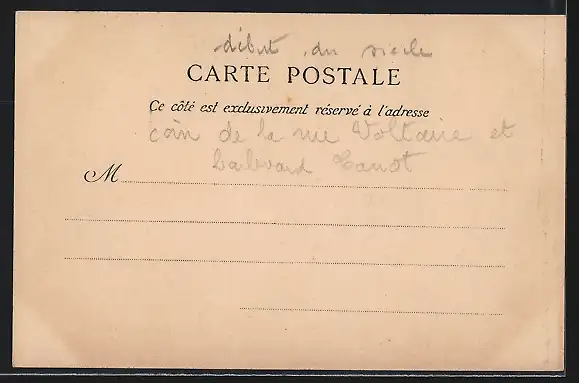 début du siècle
CARTE POSTALE
Ce côté est exclusivement réservé à l'adresse
coin de la rue Voltaire et
boulevard Carnot
M